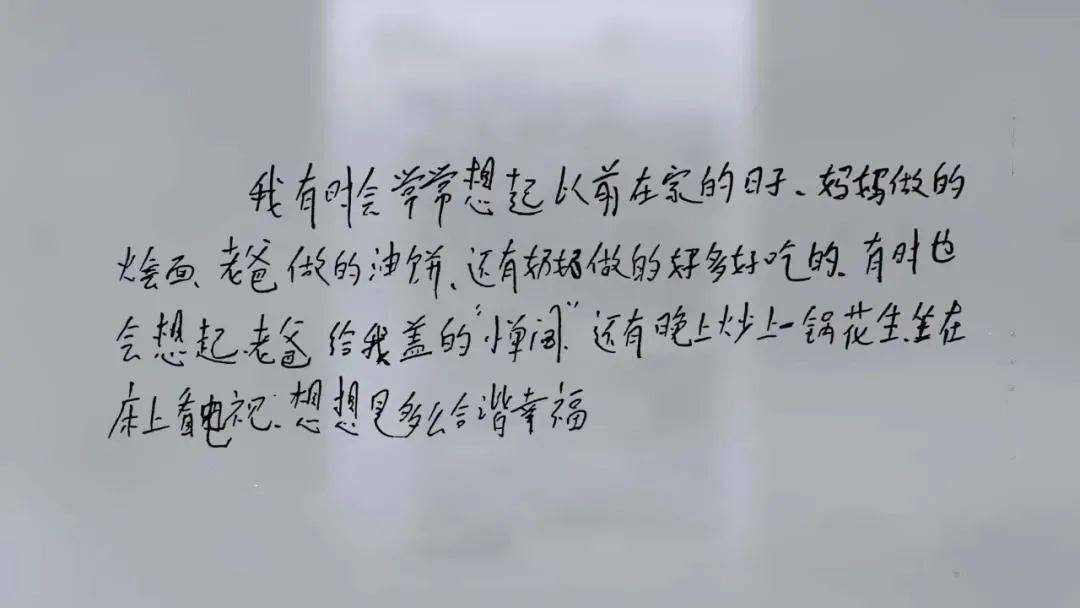 我有时会常常想起以前在家的日子、妈妈做的
烩面、老爸做的油饼、还有奶奶做的好多好吃的、有时也
会想起、老爸给我盖的“小单间”、还有晚上炒上一锅花生、坐在
床上看电视、想想是多么合谐幸福